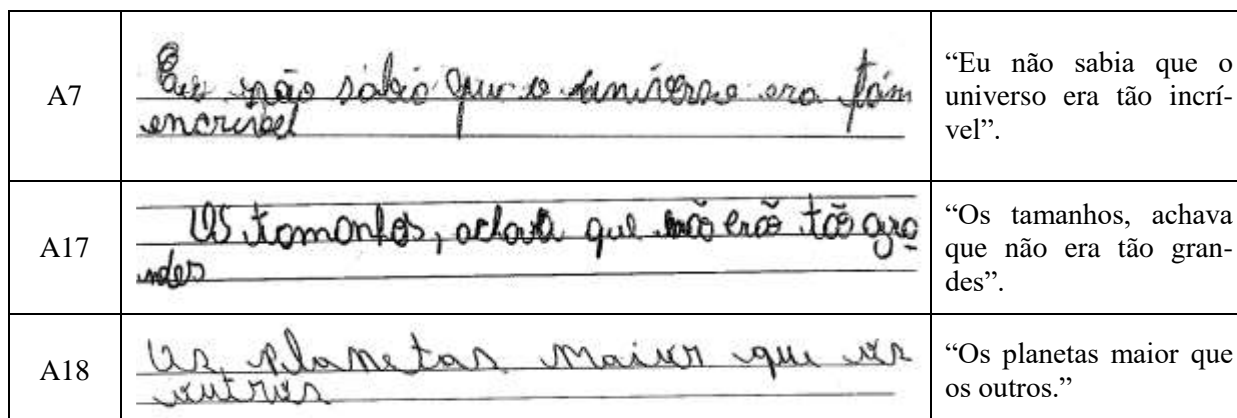 A7
Eu não sabia que o universo era tám
encrivel
“Eu não sabia que o
universo era tão incrí-
vel”.
A17
Os tamanhos, achava que não erão tão gra
ndes
“Os tamanhos, achava
que não era tão gran-
des”.
A18
Os planetas maior que os
outros
“Os planetas maior que
os outros.”